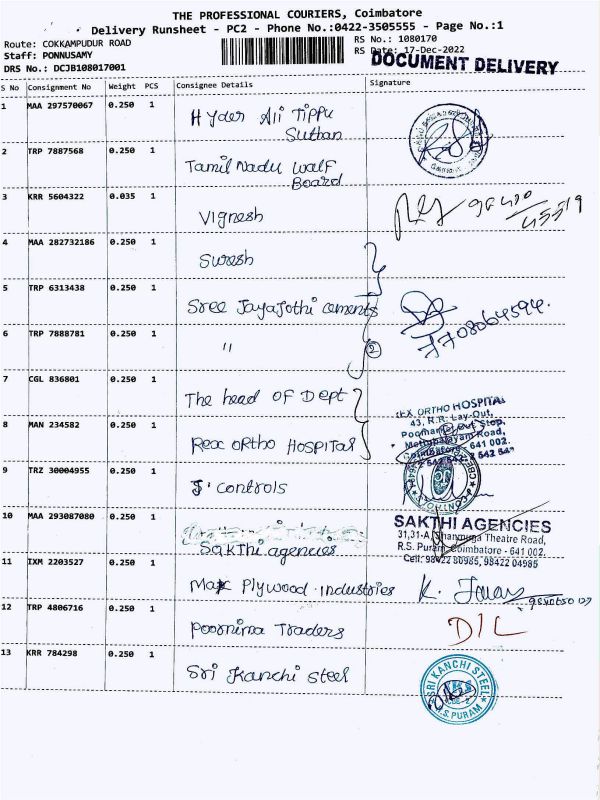 THE PROFESSIONAL COURIERS, Coimbatore
Delivery Runsheet - PC2 - Phone No.:0422-3505555 - Page No.:1
Route: COKKAMPUDUR ROAD
RS No.: 1080170
Staff: PONNUSAMY
RS Date: 17-Dec-2022
DRS No.: DCJB108017001
DOCUMENT DELIVERY
S No Consignment No Weight PCS Consignee Details Signature
1 MAA 297570067 0.250 1 Hyder Ali Tippu
Sulthan
2 TRP 7887568 0.250 1 Tamil Nadu Walf
Board
3 KRR 5604322 0.035 1 Vignesh
4 MAA 282732186 0.250 1 Suresh
5 TRP 6313438 0.250 1 Sree Jayajothi cements
7708064594.
6 TRP 7888781 0.250 1 "
2
7 CGL 836801 0.250 1 The head OF Dept
8 MAN 234582 0.250 1 Rex Ortho HOSPITAL
REX ORTHO HOSPITAL
43, R.R. Lay-Out,
Stop,
Road,
641 002.
9 TRZ 30004955 0.250 1 J' controls
10 MAA 293087080 0.250 1 Sakthi agencies
SAKTHI AGENCIES
31,31-A, Shanmuga Theatre Road,
R.S. Puram, Coimbatore - 641 002.
Cell: 98422 86985, 98422 04985
11 IXM 2203527 0.250 1 Max Plywood.industries
K.
12 TRP 4806716 0.250 1 Poornima Traders D/L
13 KRR 784298 0.250 1 Sri Kanchi steel
SRI KANCHI STEEL
R.S. PURAM